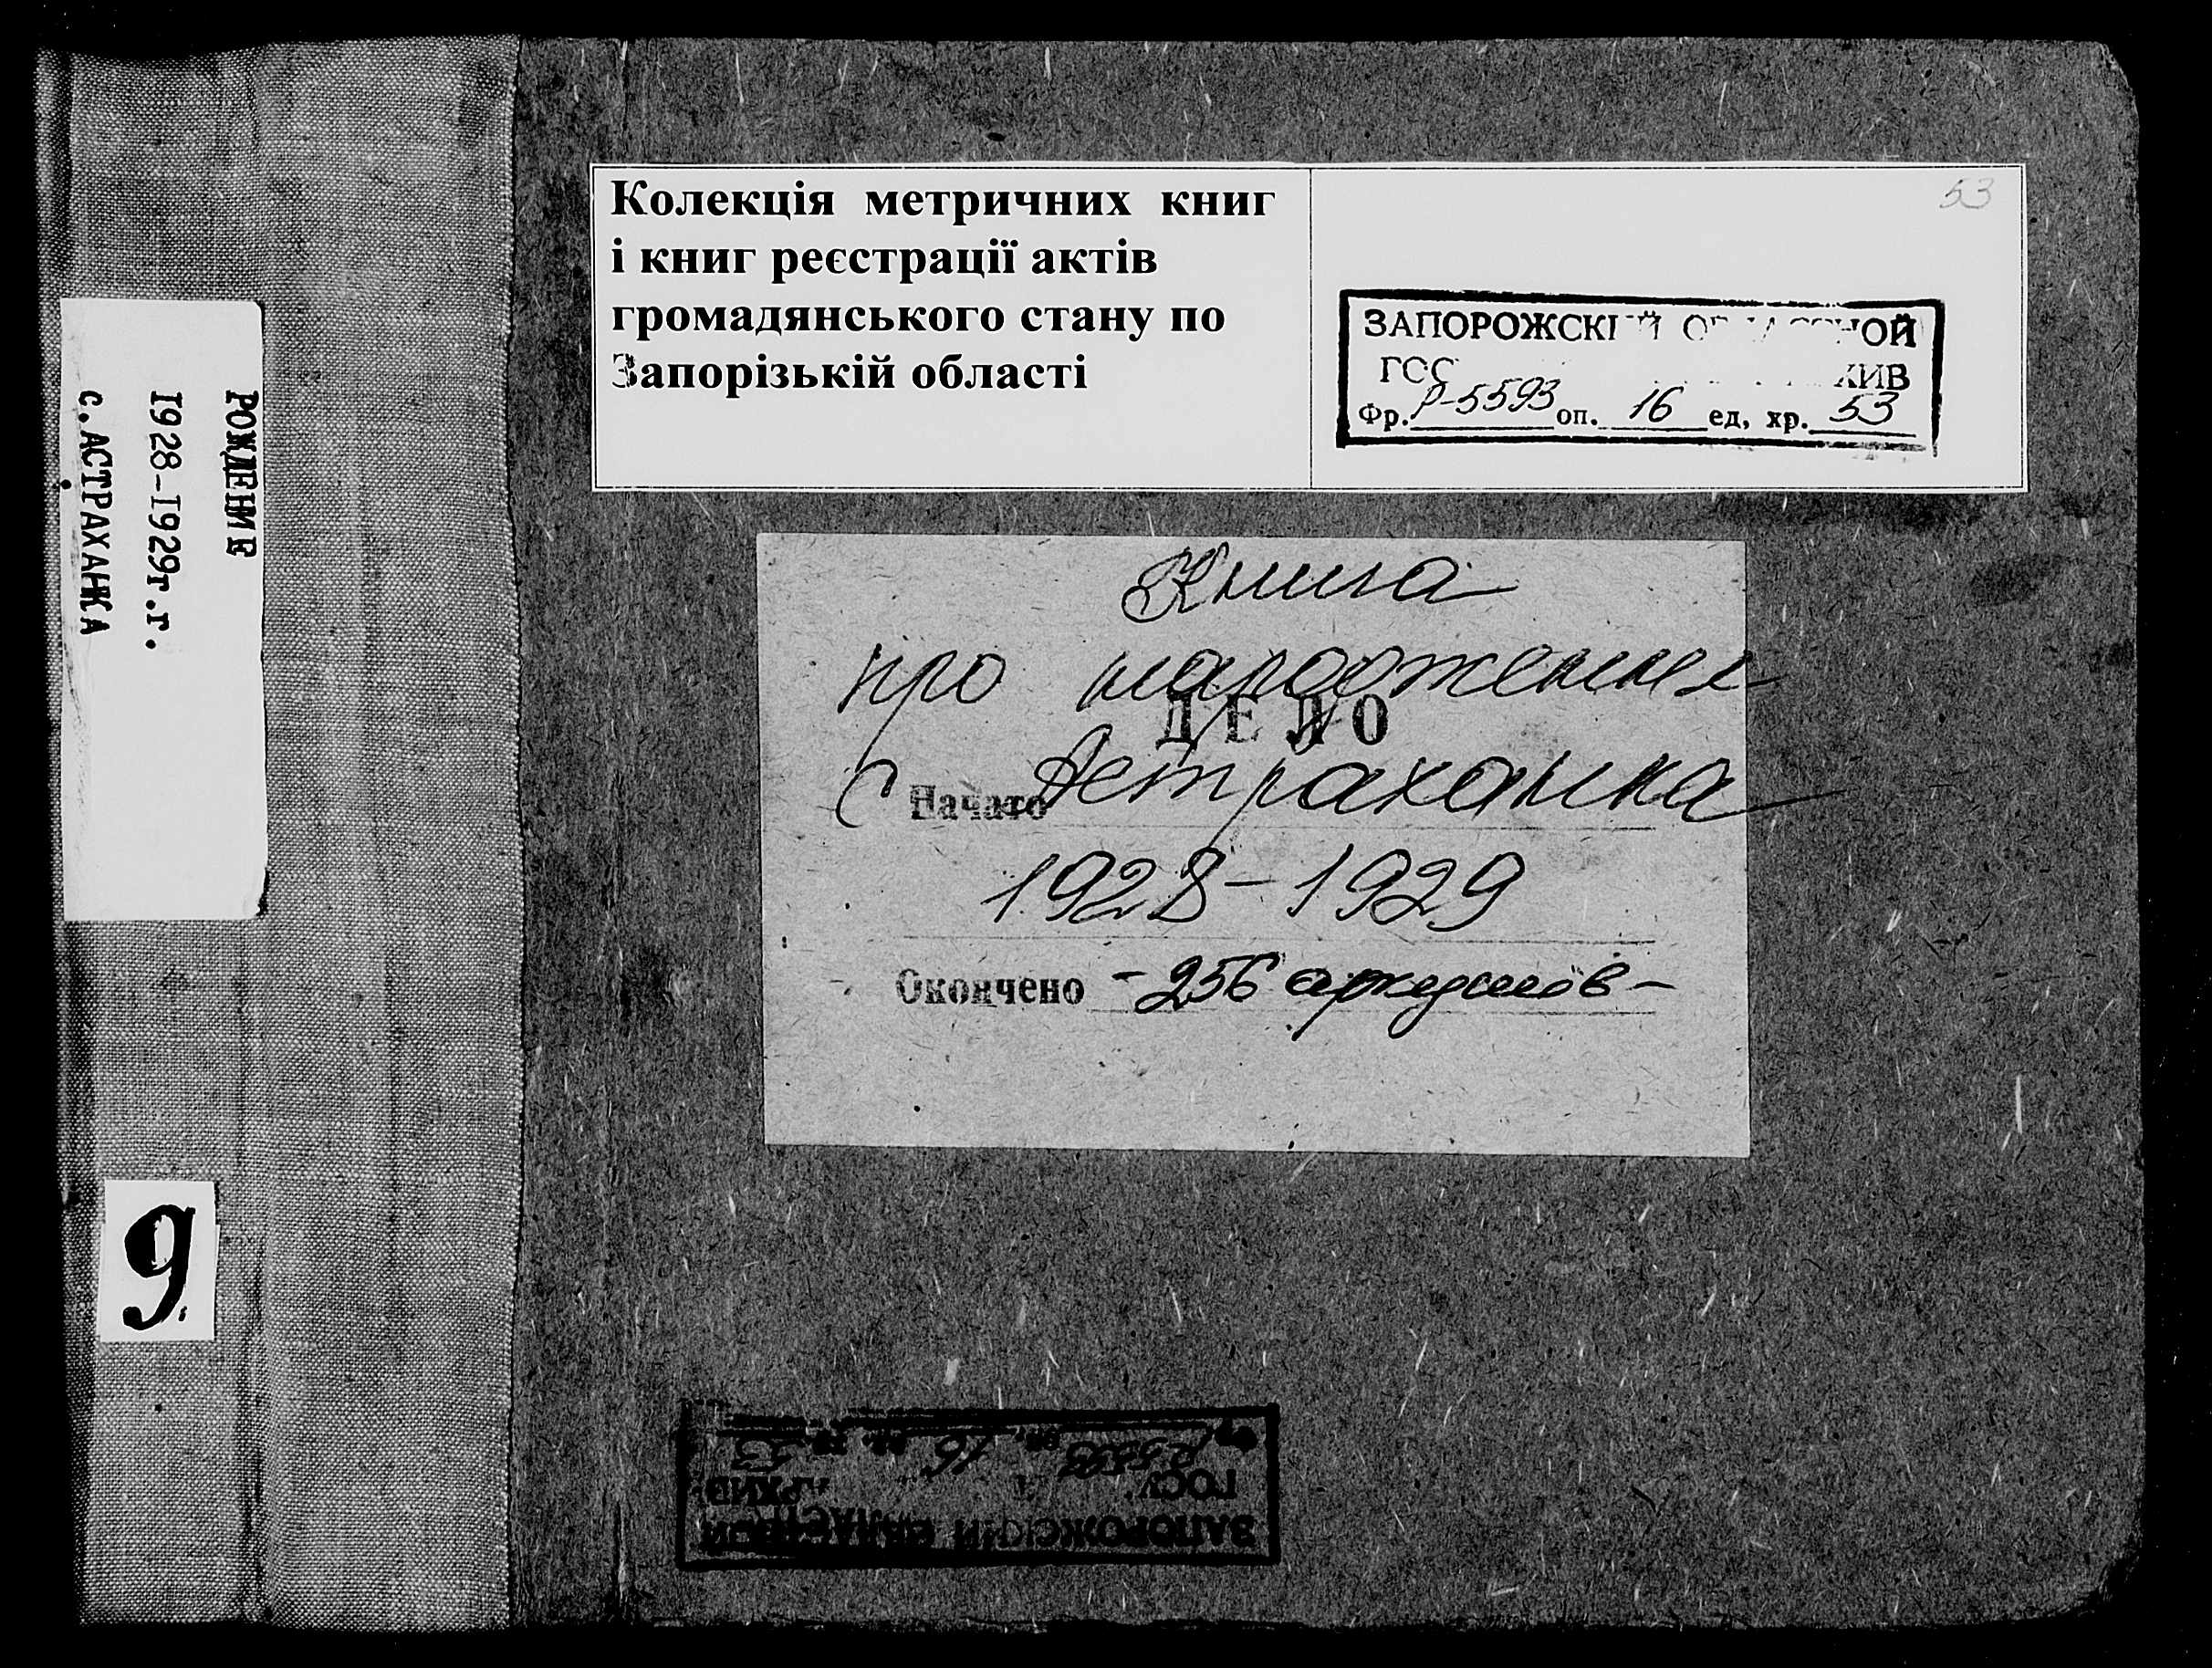 Колекція метричних книг
і книг реєстрації актів
громадянського стану по
Запорізькій області
53
ЗАПОРОЖСКИЙ ОБЛАСТНОЙ
ГОС АРХИВ
Фр. Р-5593 оп. 16 ед, хр. 53
РОЖДЕНИЕ
I928-I929г.г.
с.АСТРАХАНКА
9
Книга
про народження
ДЕЛО
с Астраханка
Начато
1928-1929
Окончено - 256 аркушів -
ЗАПОРОЖСКИЙ ОБЛАСТНОЙ
ГОСУ АРХИВ
Р-5593 оп. 16 ед. хр. 53